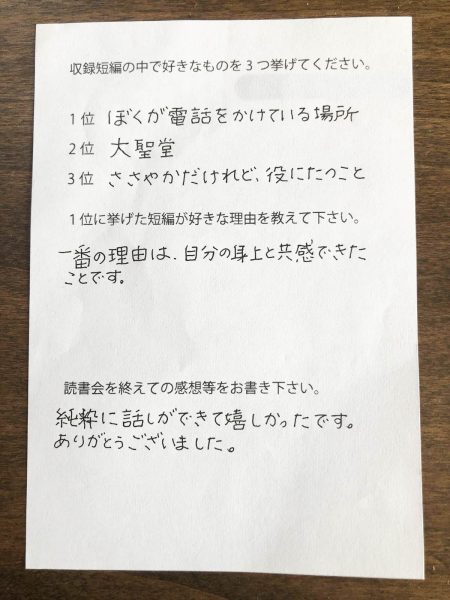 収録短編の中で好きなものを３つ挙げてください。
１位 ぼくが電話をかけている場所
２位 大聖堂
３位 ささやかだけれど、役にたつこと
１位に挙げた短編が好きな理由を教えて下さい。
一番の理由は、自分の身上と共感できた
ことです。
読書会を終えての感想等をお書き下さい。
純粋に話しができて嬉しかったです。
ありがとうございました。